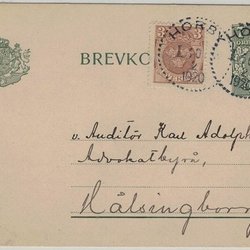 BREVKO
3
HÖRBY
1920
1920
v. Auditör Karl Adolph
Advokatbyrå,
Hälsingborg